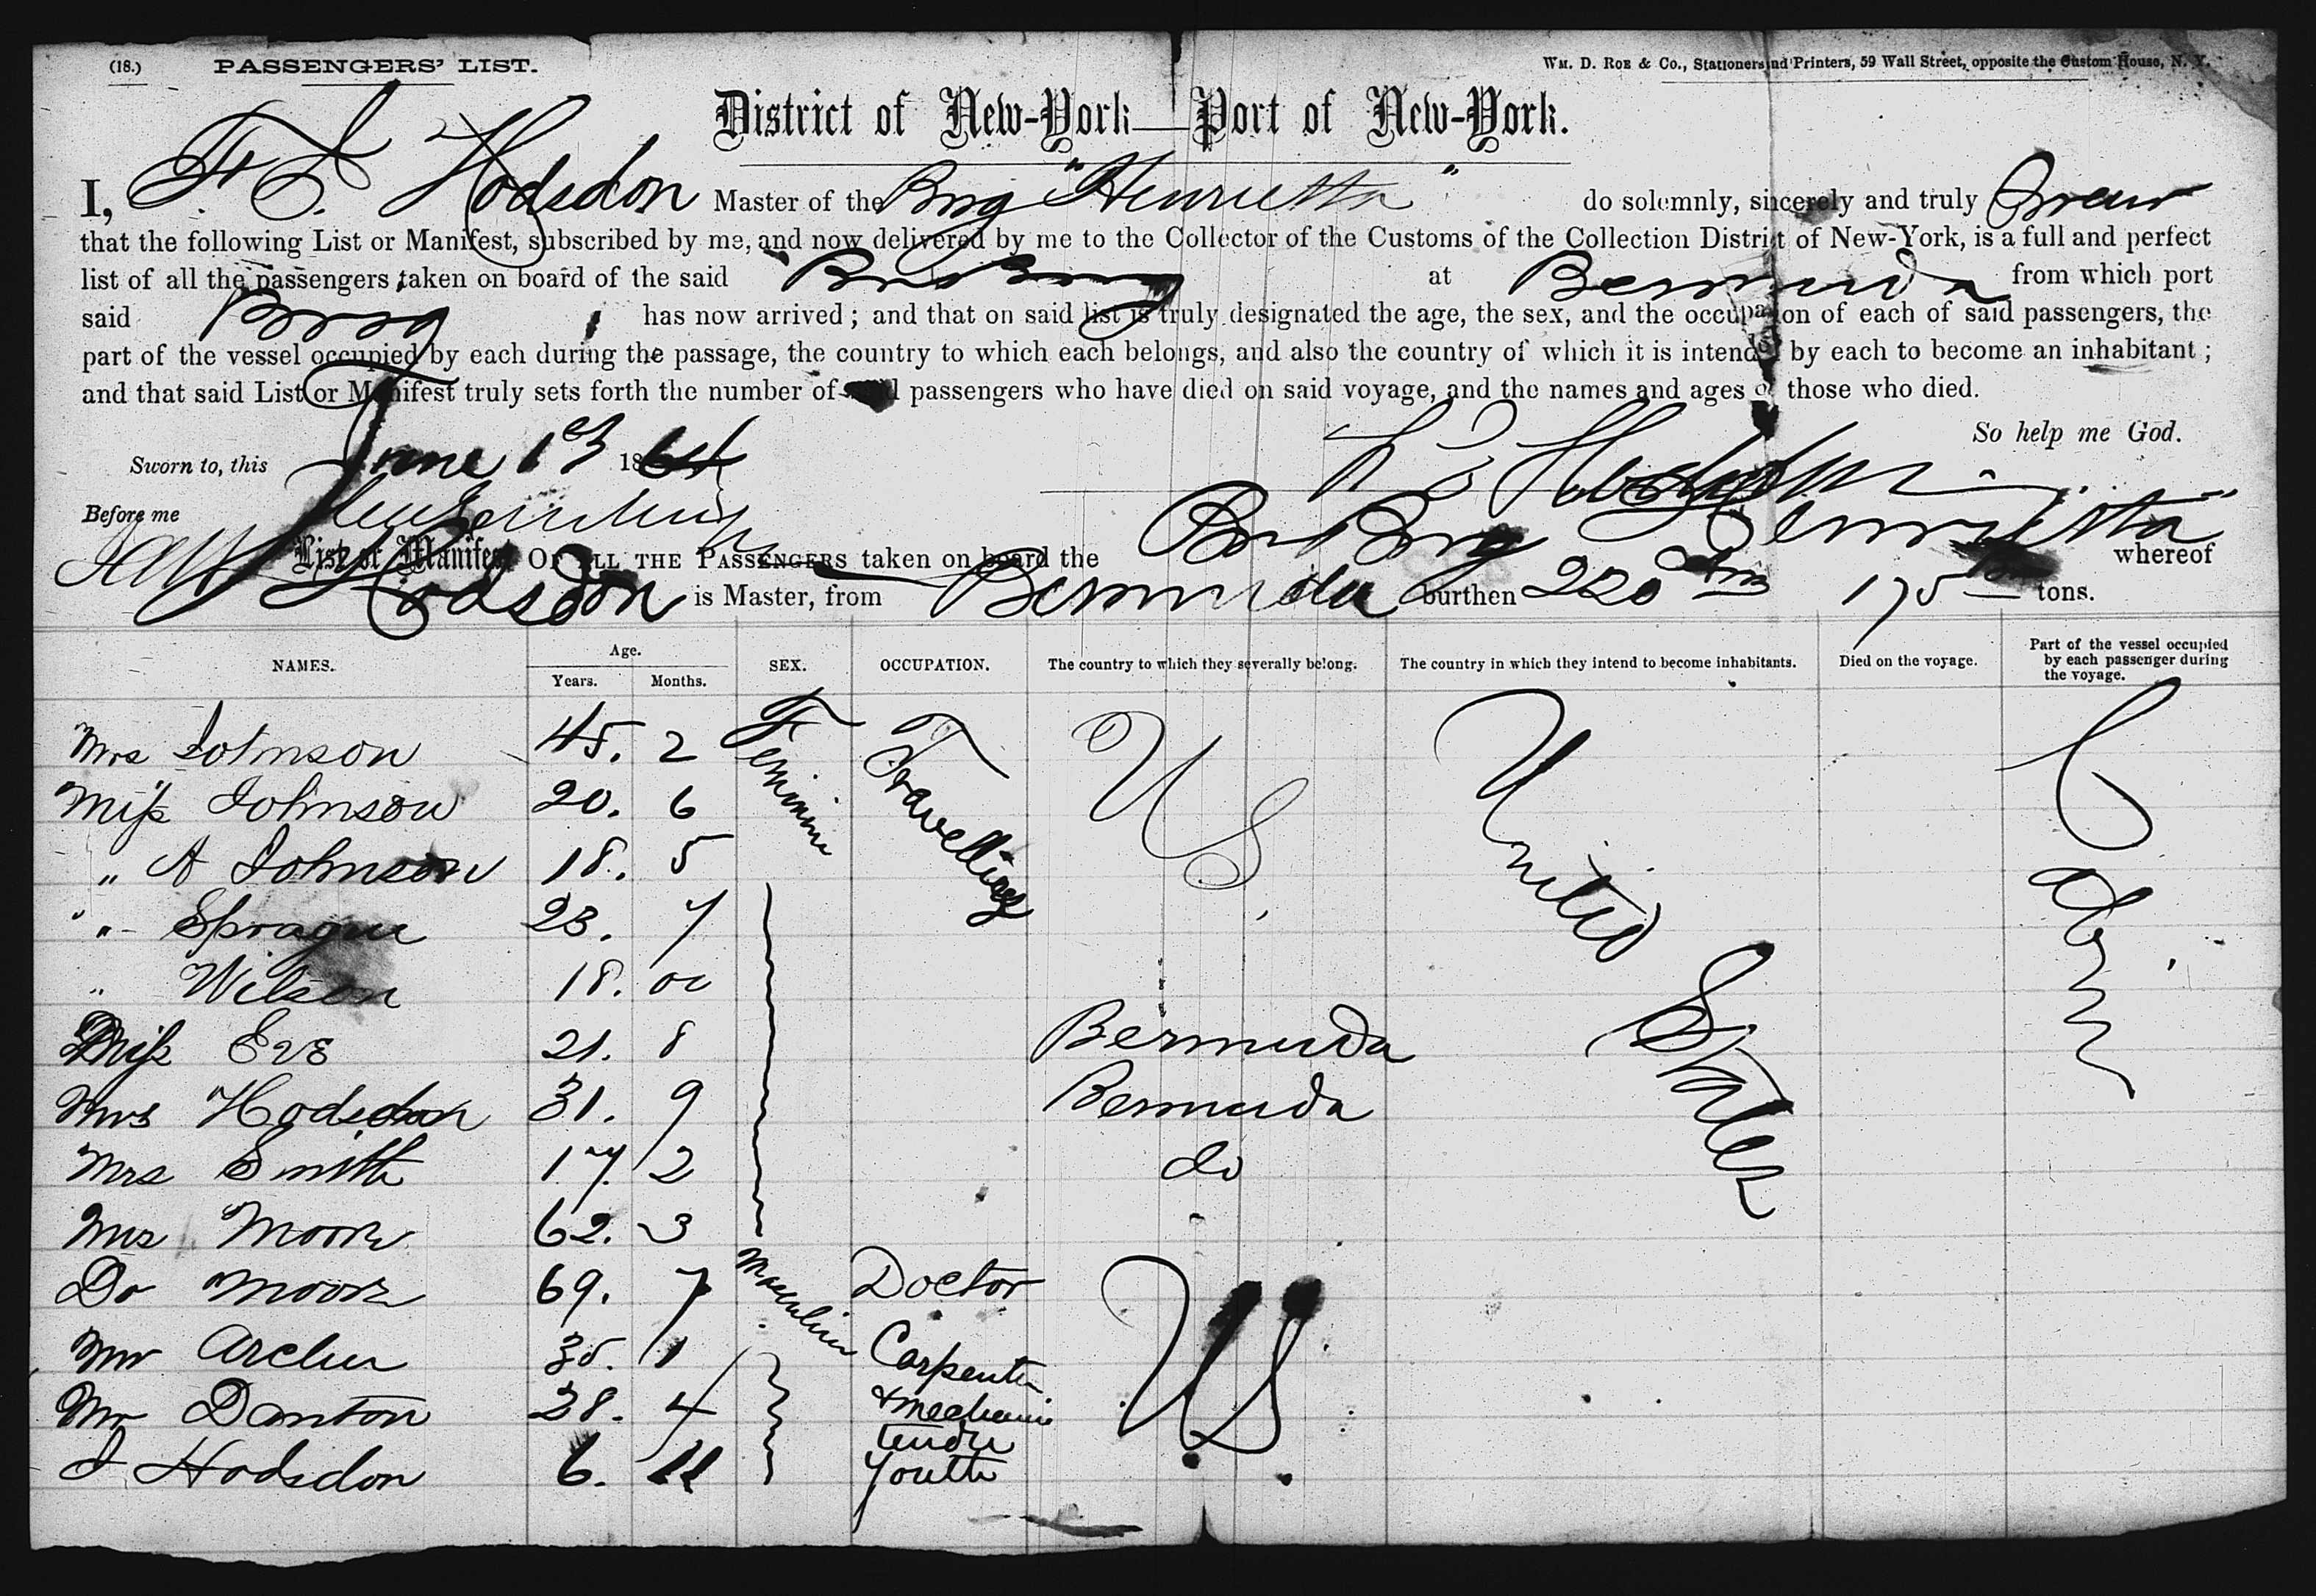 (18.) PASSENGERS' LIST. WM. D. ROE & CO., Stationers and Printers, 59 Wall Street, opposite the Custom House, N. Y.
District of New-York—Port of New-York.
I, F. L. Hodsdon Master of the Brig "Henrietta" do solemnly, sincerely and truly Swear
that the following List or Manifest, subscribed by me, and now delivered by me to the Collector of the Customs of the Collection District of New-York, is a full and perfect
list of all the passengers taken on board of the said Brig at Bermuda from which port
said Brig has now arrived; and that on said list is truly designated the age, the sex, and the occupation of each of said passengers, the
part of the vessel occupied by each during the passage, the country to which each belongs, and also the country of which it is intended by each to become an inhabitant;
and that said List or Manifest truly sets forth the number of said passengers who have died on said voyage, and the names and ages of those who died.
So help me God.
Sworn to, this June 1st 1864 Hodsdon
Before me
List or Manifest OF ALL THE PASSENGERS taken on board the Brig Henrietta whereof
Hodsdon is Master, from Bermuda burthen 220 175 tons.
NAMES. Age. Years. Months. SEX. OCCUPATION. The country to which they severally belong. The country in which they intend to become inhabitants. Died on the voyage. Part of the vessel occupied by each passenger during the voyage.
Mrs Johnson 45. 2 Feminine Travelling U S United States Cabin
Miss Johnson 20. 6
" A Johnson 18. 5
" Sprague 23. 7
" Wilson 18. 00
Miss Eve 21. 8 Bermuda
Mrs Hodsdon 31. 9 Bermuda
Mrs Smith 17. 2 do
Mrs Moore 62. 3
Dr Moore 69. 7 Masculine Doctor U.S.
Mr Archer 35. 1 Carpenter
Mr Danton 28. 4 & mechanic
J Hodsdon 6. 11 Tender Youth